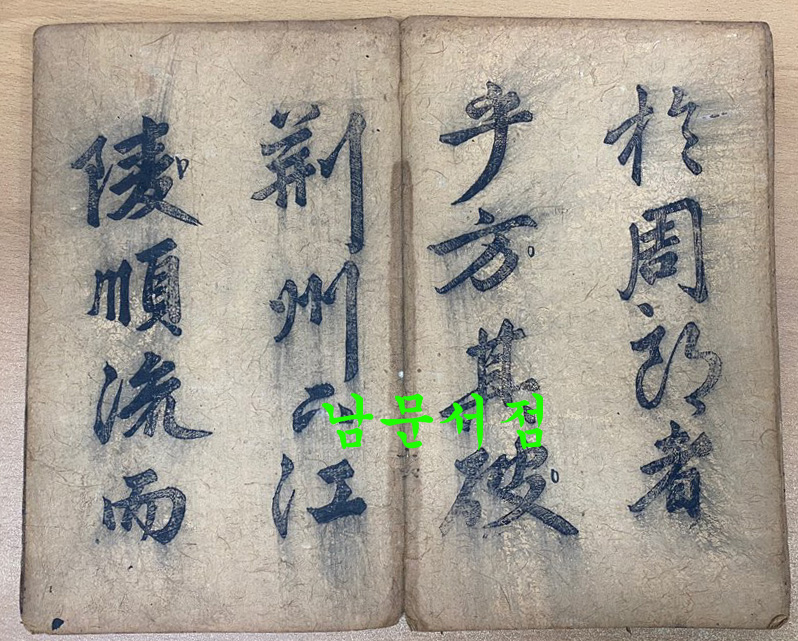 於周郎者
乎方其破
荆州下江
陵順流而
남문서점